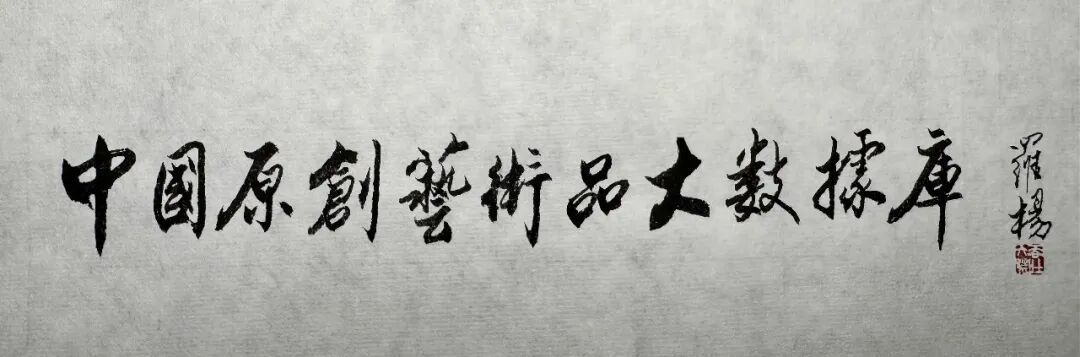 中國原創藝術品大數據庫
羅楊